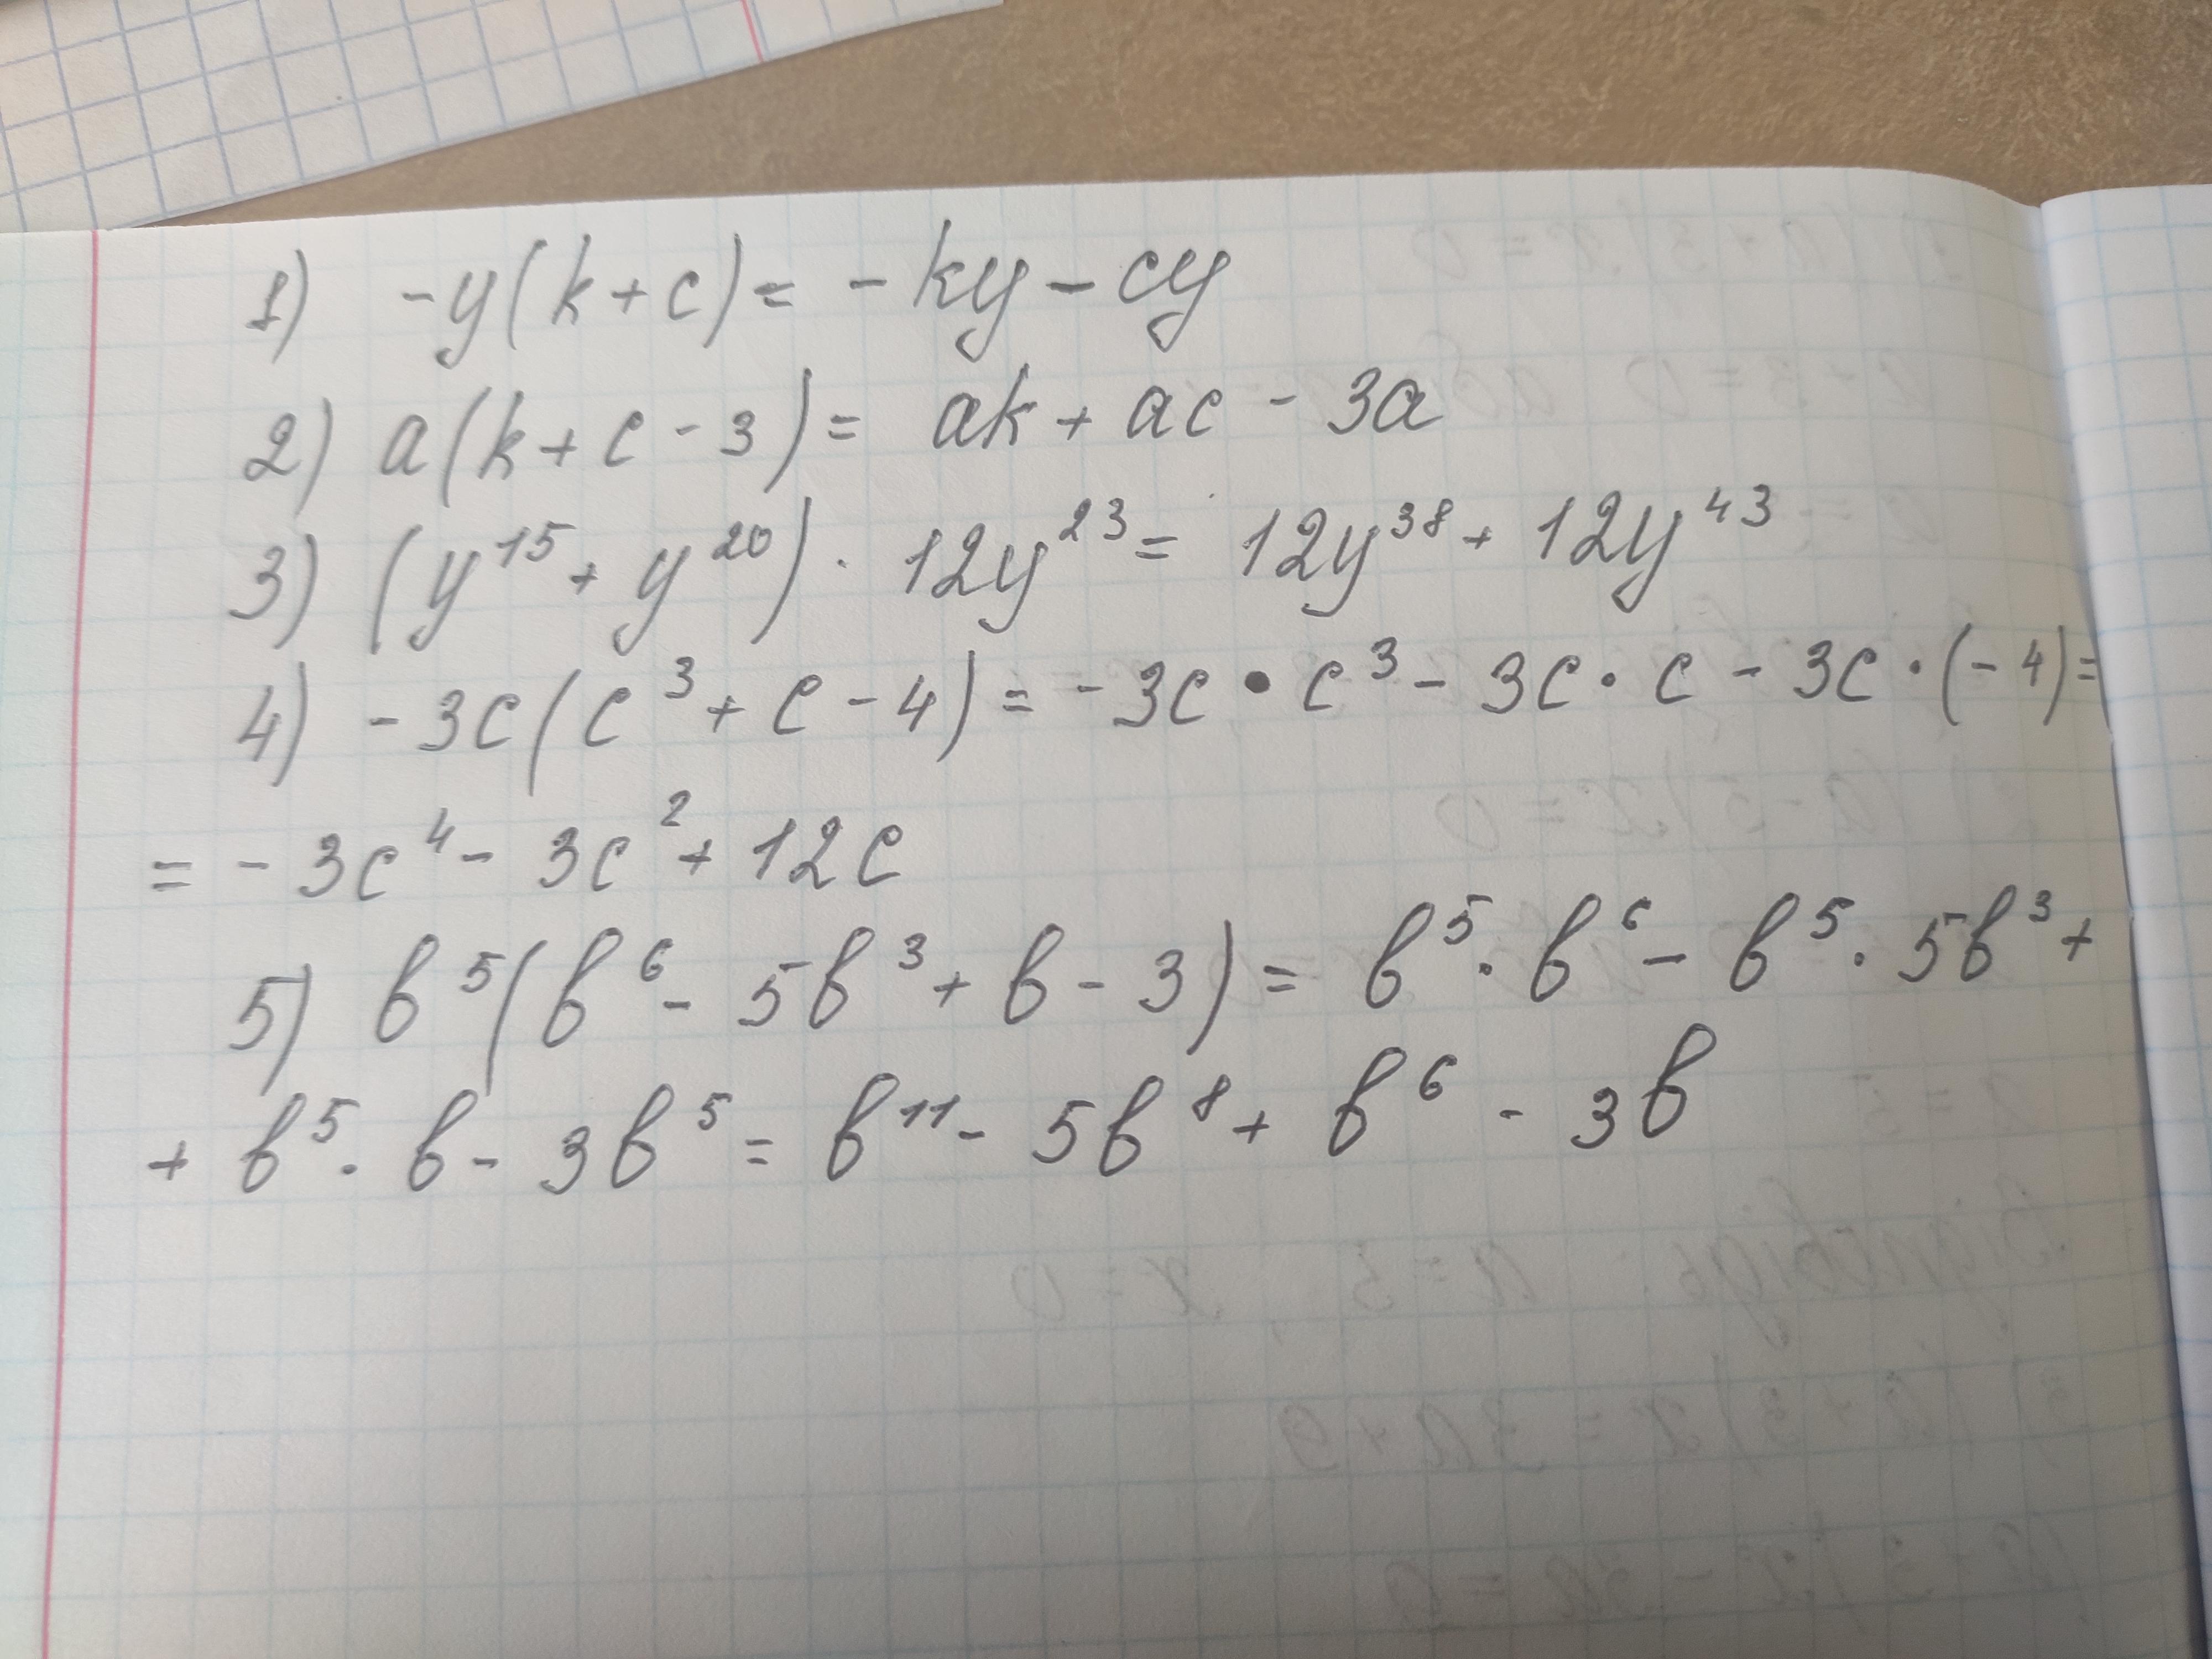 1) -y(k+c)= -ky-cy
2) a(k+c-3)= ak+ac-3a
3) (y¹⁵+y²⁰)·12y²³= 12y³⁸+12y⁴³
4) -3c(c³+c-4)=-3c•c³-3c·c-3c·(-4)=
=-3c⁴-3c²+12c
5) b⁵(b⁶-5b³+b-3)=b⁵·b⁶-b⁵·5b³+
+b⁵·b-3b⁵=b¹¹-5b⁸+b⁶-3b